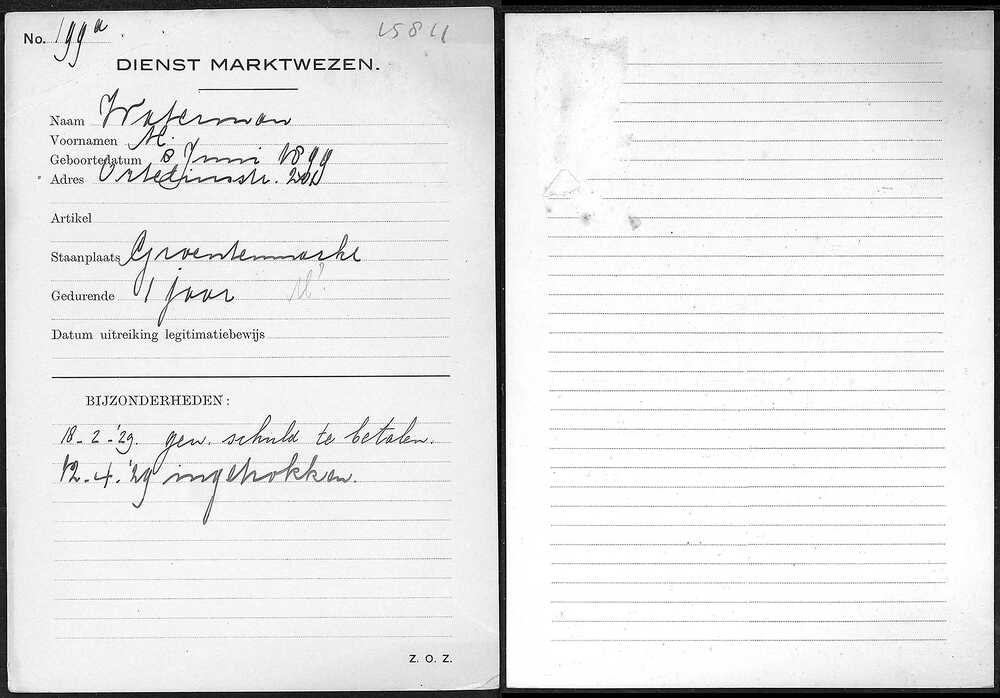 No. 199a
15811
DIENST MARKTWEZEN.
Naam Waterman
Voornamen M.
Geboortedatum 8 Juni 1899
Adres Orteliusstr. 20
Artikel
Staanplaats Groentenmarkt
Gedurende 1 jaar M?
Datum uitreiking legitimatiebewijs
BIJZONDERHEDEN:
18-2-'29. gen. schuld te betalen.
12-4-'29 ingetrokken.
Z. O. Z.